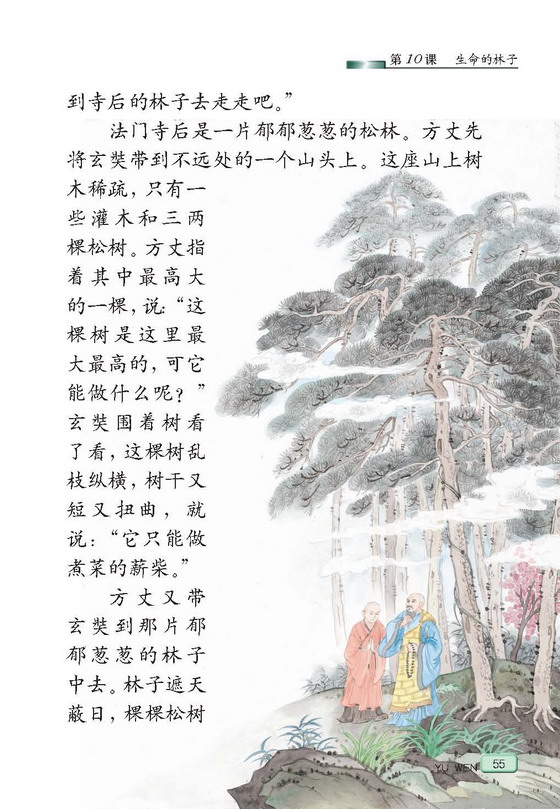 第10课 生命的林子
到寺后的林子去走走吧。”
法门寺后是一片郁郁葱葱的松林。方丈先
将玄奘带到不远处的一个山头上。这座山上树
木稀疏，只有一
些灌木和三两
棵松树。方丈指
着其中最高大
的一棵，说：“这
棵树是这里最
大最高的，可它
能做什么呢？”
玄奘围着树看
了看，这棵树乱
枝纵横，树干又
短又扭曲，就
说：“它只能做
煮菜的薪柴。”
方丈又带
玄奘到那片郁
郁葱葱的林子
中去。林子遮天
蔽日，棵棵松树
YU WEN 55